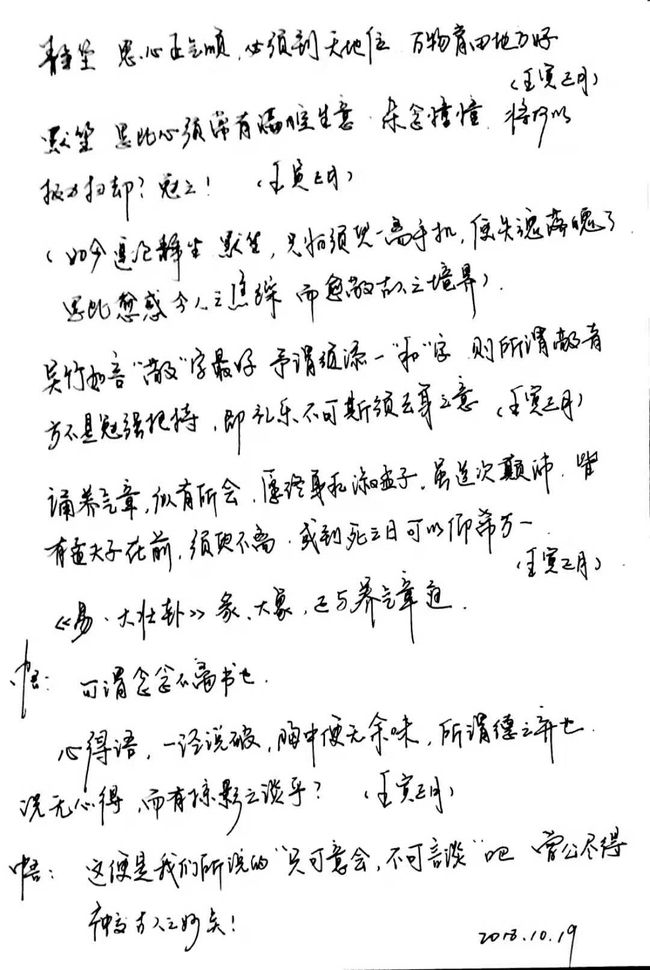 静坐 思心正气顺,必须到天地位 万物育田地方好
(壬寅正月)
默坐 思此心须常有满腔生意 杂念憧憧 将何以
极力扫却?勉之!(壬寅正月)
(如今遑论静坐 默坐,只怕须臾一离手机,便失魂落魄了
思此愈感今人之焦躁 而愈敬古人之境界)
吴竹如言“敬”字最好 予谓须添一“和”字 则所谓敬者
方不是勉强把持,即礼乐不可斯须去身之意 (壬寅正月)
诵养气章,似有所会,愿终身私淑孟子,虽造次颠沛,皆
有孟夫子在前,须臾不离,或到死之日可以仰希万一
(壬寅正月)
《易·大壮卦》彖、大象,正与养气章通
悟:可谓念念不离书也.
心得语,一经说破,胸中便无余味,所谓德之弃也
况无心得,而有掠影之谈乎?(壬寅正月)
悟:这便是我们所说的“只可意会,不可言谈”吧 曾公尽得
神交古人之妙矣!
2018.10.19